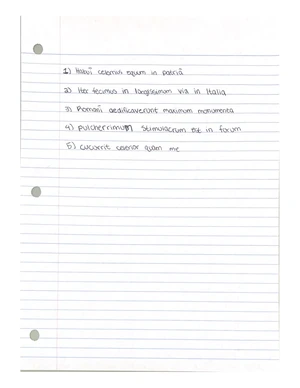 1) Habuī celerrius equum in patriā
2) Iter fecimus in longissimum via in Italia
3) Romani aedificaverunt maximum monumenta
4) pulcherrimum stimulacrum est in forum
5) cucurrit celerior quam me